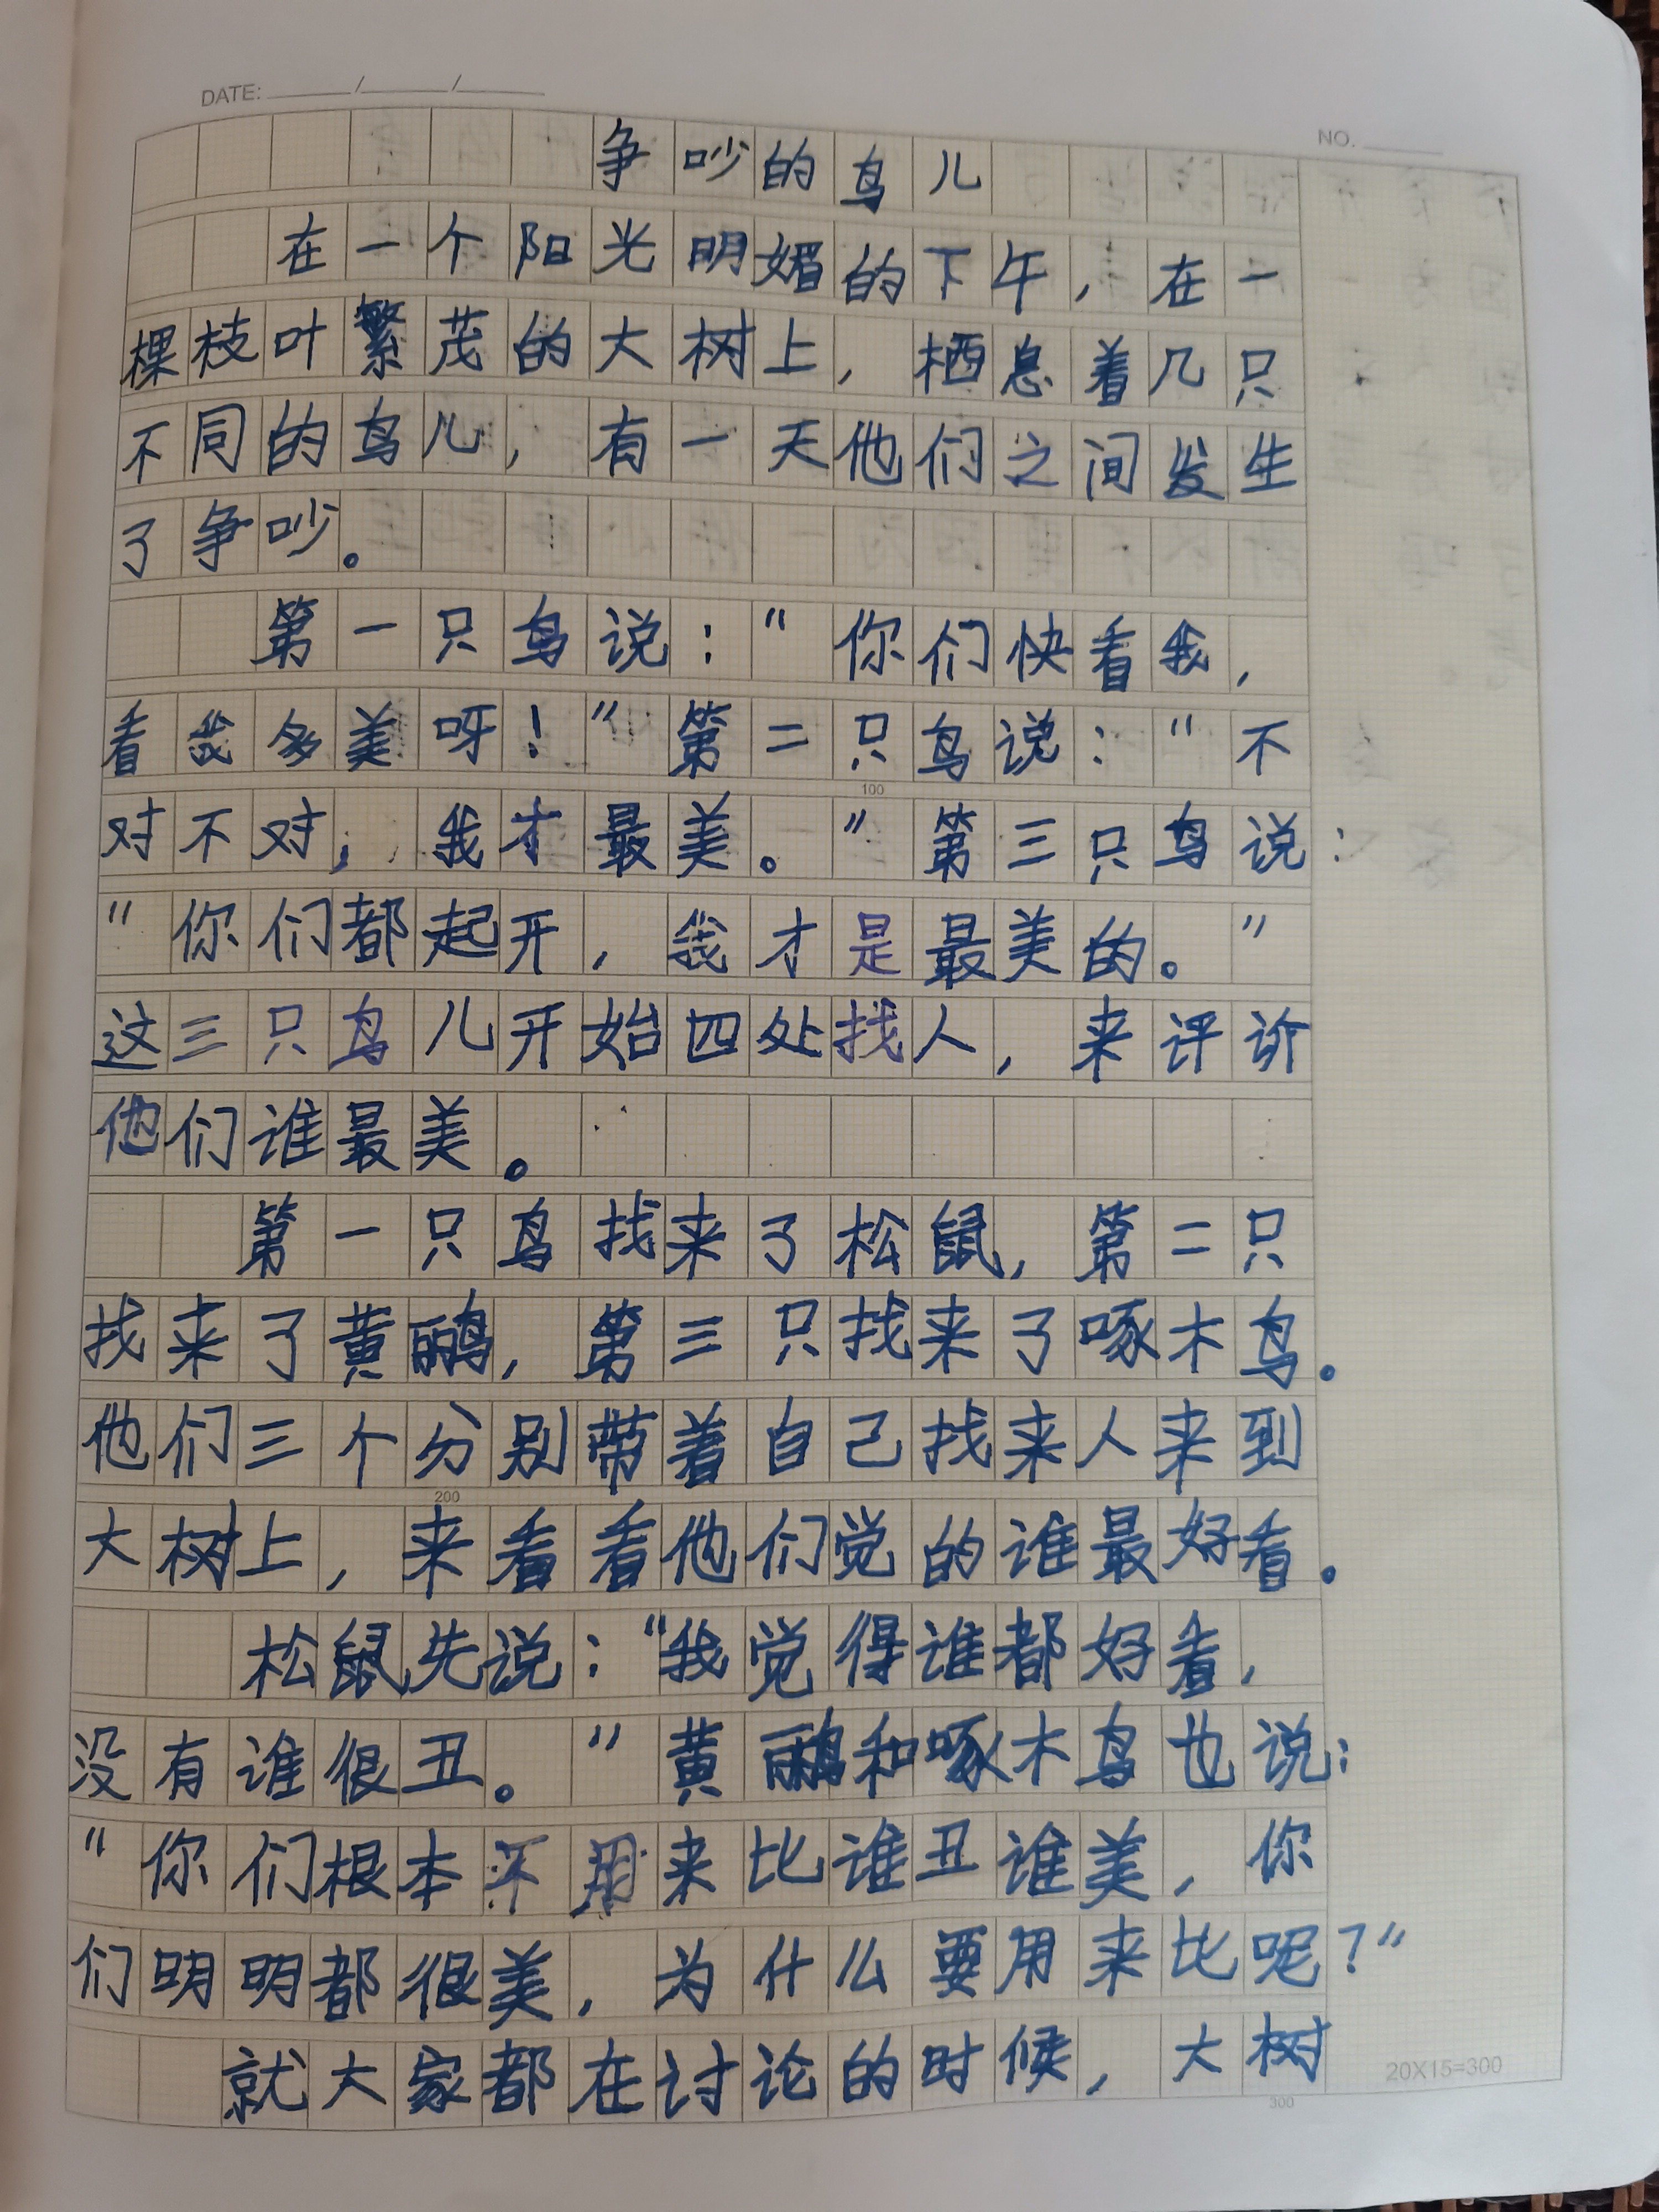 DATE: ____/____/____
NO. ____
争吵的鸟儿
在一个阳光明媚的下午，在一
棵枝叶繁茂的大树上，栖息着几只
不同的鸟儿，有一天他们之间发生
了争吵。
第一只鸟说：“你们快看我，
看我多美呀！”第二只鸟说：“不
100
对不对，我才最美。”第三只鸟说：
“你们都起开，我才是最美的。”
这三只鸟儿开始四处找人，来评价
他们谁最美。
第一只鸟找来了松鼠，第二只
找来了黄鹂，第三只找来了啄木鸟。
他们三个分别带着自己找来人来到
200
大树上，来看看他们觉的谁最好看。
松鼠先说：“我觉得谁都好看，
没有谁很丑。”黄鹂和啄木鸟也说：
“你们根本不用来比谁丑谁美，你
们明明都很美，为什么要用来比呢？”
就大家都在讨论的时候，大树
20X15=300
300